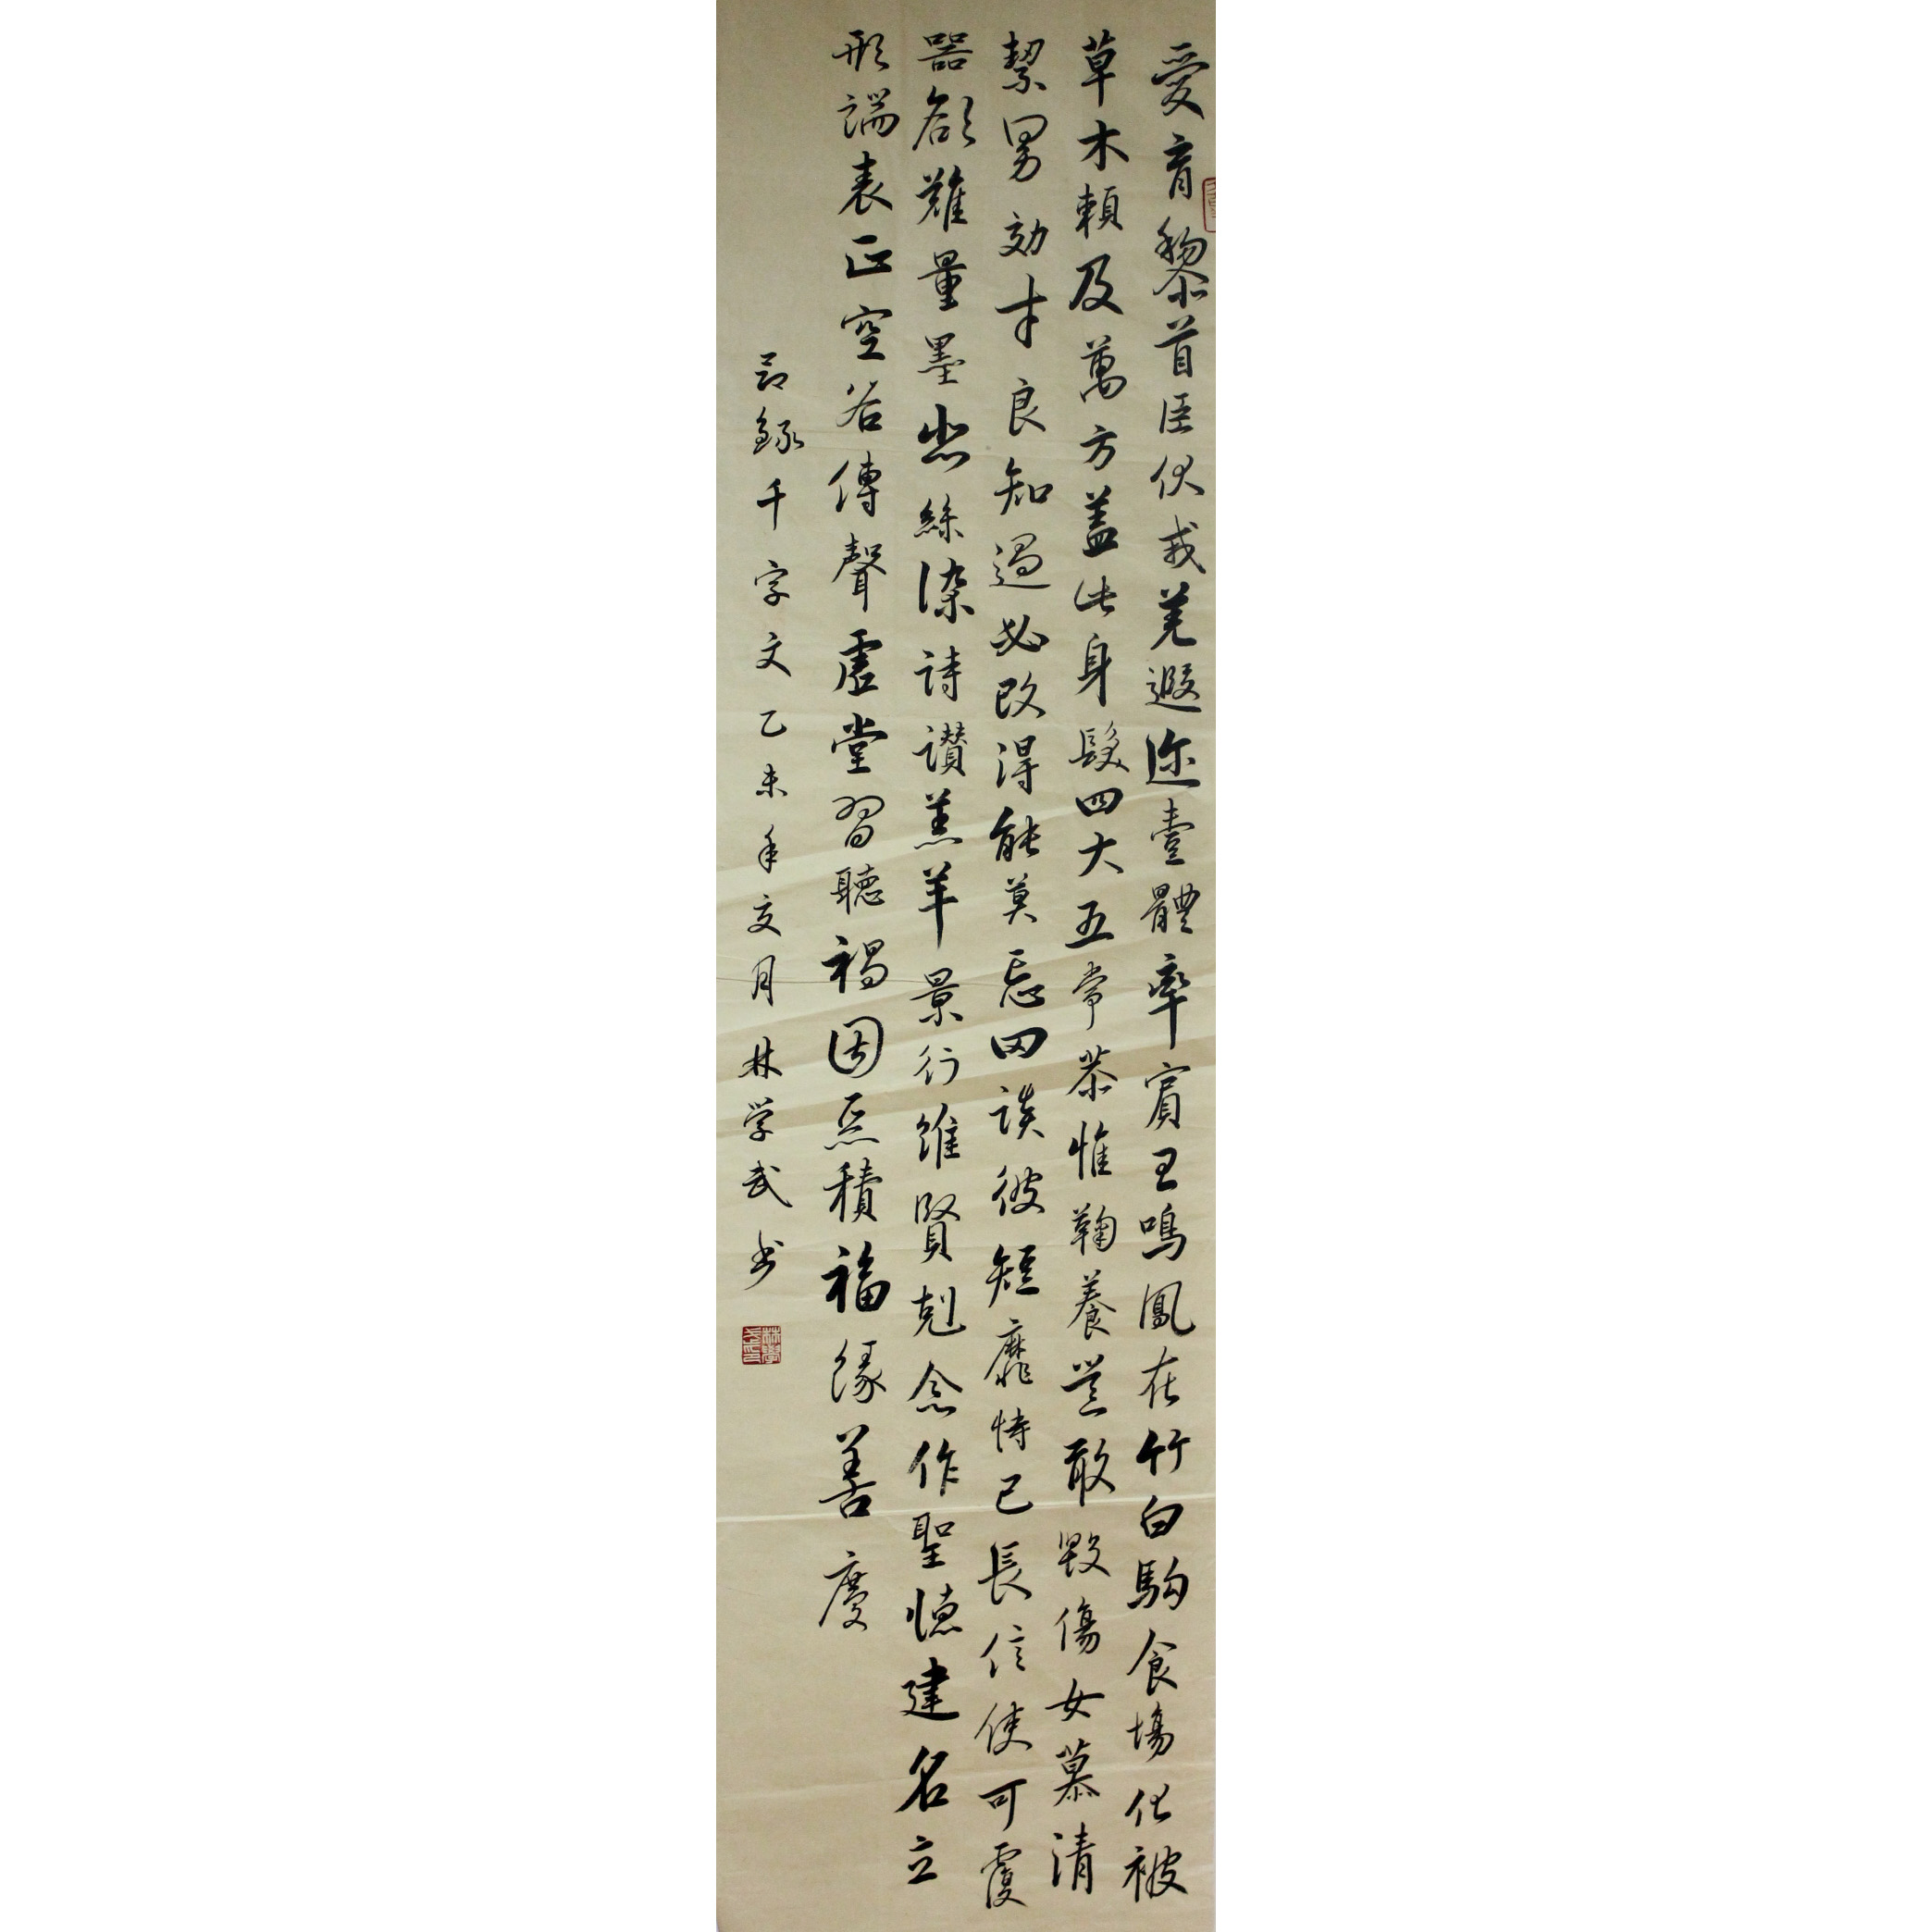 愛育黎首臣伏戎羌遐迩壹體率賓王鳴鳳在竹白駒食場化被
草木賴及萬方蓋此身髮四大五常恭惟鞠養豈敢毀傷女慕清
絜男効才良知過必改得能莫忘罔談彼短靡恃己長信使可覆
器欲難量墨悲絲染詩讚羔羊景行維賢剋念作聖德建名立
形端表正空谷傳聲虛堂習聽禍因惡積福緣善慶
節錄千字文乙未年文月林学武书